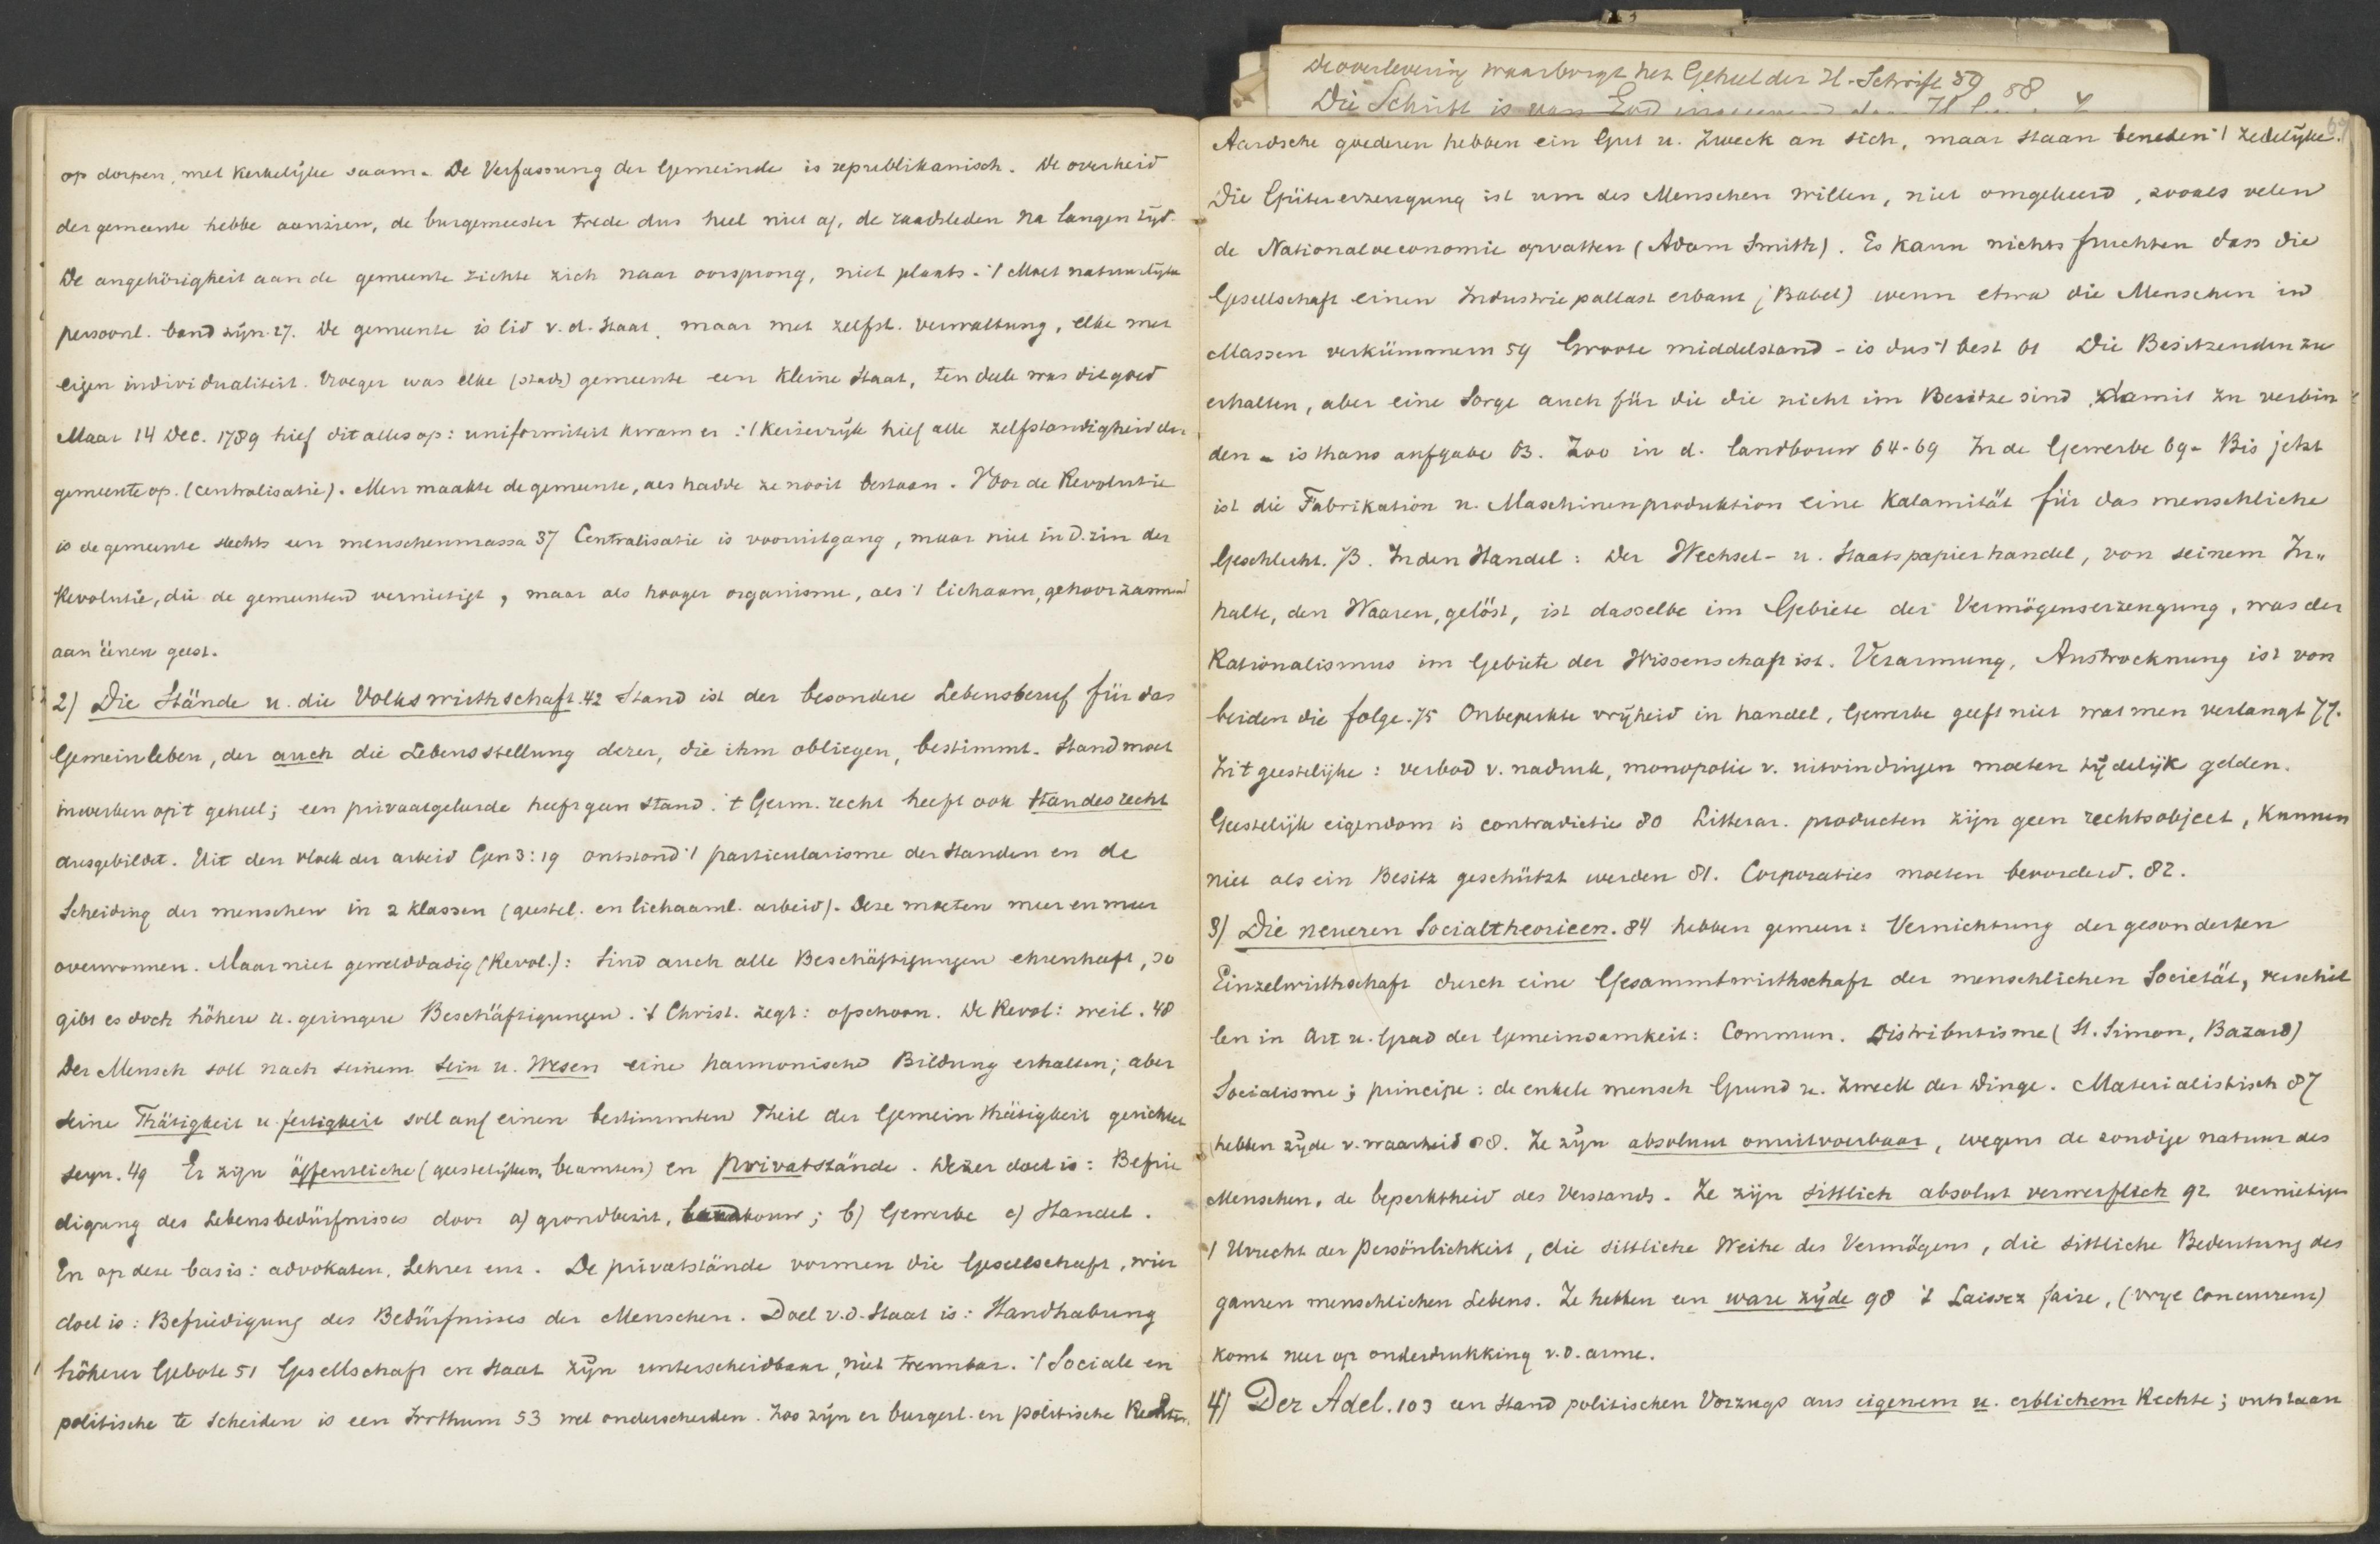 De overlevering waarborgt het Geheel der H. Schrift 59 58
Die Schrift is van God
op dorpen, met kerkelijke saam. De Verfassung der Gemeinde is republikanisch. De overheid
der gemeente hebbe aanzien, de burgemeester trede dus heel niet af, de raadsleden na langen tijd.
De angehörigheit aan de gemeente richte zich naar oorsprong, niet plaats. 't Moet natuurlijke
persoonl. band zijn. 27. De gemeente is lid v. d. Staat, maar met zelfst. verwaltung, elke met
eigen individualiteit. Vroeger was elke (stads) gemeente een kleine Staat, ten deele was dit goed
Maar 14 Dec. 1789 hief dit alles op: uniformiteit kwam er: 't keizerrijk hief alle zelfstandigheid der
gemeente op. (centralisatie). Men maakte de gemeente, als hadde ze nooit bestaan. Voor de Revolutie
is de gemeente slechts een menschenmassa 37 Centralisatie is vooruitgang, maar niet in d. zin der
Revolutie, die de gemeenten vernietigt, maar als hooger organisme, als 't lichaam, gehoorzamend
aan éénen geest.
2) Die Stände u. die Volkswirthschaft. 42 Stand ist der besondere Lebensberuf für das
Gemeinleben, der auch die Lebensstellung derer, die ihm obliegen, bestimmt. Stand moet
inwerken op 't geheel; een privaatgeleerde heeft geen stand. 't Germ. recht heeft ook Standesrecht
ausgebildet. Uit den vloek der arbeid Gen 3:19 ontstond 't particularisme der Standen en de
Scheiding der menschen in 2 klassen (geestel. en lichaaml. arbeid). Deze moeten meer en meer
overwonnen. Maar niet gewelddadig (Revol.): Sind auch alle Beschäftigungen ehrenhaft, so
gibt es doch höhere u. geringere Beschäftigungen. 't Christ. zegt: ofschoon. De Revol: weil. 48
Der Mensch soll nach seinem Sein u. Wesen eine harmonische Bildung erhalten; aber
seine Thätigkeit u. fertigkeit soll auf einen bestimmten Theil der Gemeinthätigkeit gerichtet
seyn. 49 Er zijn öffentliche (geestelijken, beamten) en privatstände. Dezer doel is: Befrie
digung des Lebensbedürfnisses door a) grondbezit, landbouw; b) Gewerbe c) Handel.
En op deze basis: advokaten, Lehrer enz. De privatstände vormen die Gesellschaft, wier
doel is: Befriedigung des Bedürfnisses der Menschen. Doel v. d. Staat is: Handhabung
höherer Gebote 51 Gesellschaft en Staat zijn unterscheidbaar, niet trennbar. 't Sociale en
politische te scheiden is een Irrthum 53 wel onderscheiden. Zoo zijn er burgerl. en politische Rechten.
Aardsche goederen hebben ein Gut u. Zweck an sich, maar staan beneden 't zedelijke.
Die Gütererzeugung ist um des Menschen willen, niet omgekeerd, zooals velen
de Nationaloeconomie opvatten (Adam Smith). Es kann nichts fruchten dass die
Gesellschaft einen Industriepallast erbaut (Babel) wenn etwa die Menschen in
Massen verkümmern 59 Groote middelstand - is dus 't best 61 Die Besitzenden zu
erhalten, aber eine Sorge auch für die die nicht im Besitze sind, damit zu verbin
den - is thans aufgabe 63. Zoo in d. landbouw 64-69 In de Gewerbe 69- Bis jetzt
ist die Fabrikation u. Maschinenproduktion eine Kalamität für das menschliche
Geschlecht. 73. In den Handel: Der Wechsel- u. Staatspapierhandel, von seinem In-
halte, den Waaren, gelöst, ist dasselbe im Gebiete der Vermögenserzeugung, was der
Rationalismus im Gebiete der Wissenschaft ist. Verarmung, Austrocknung ist von
beiden die folge. 75 Onbeperkte vrijheid in handel, Gewerbe geeft niet wat men verlangt 77.
In 't geestelijke: verbod v. nadruk, monopolie v. uitvindingen moeten tijdelijk gelden.
Geestelijk eigendom is contradictie 80 Litterar. producten zijn geen rechtsobject, kunnen
niet als ein Besitz geschützt werden 81. Corporaties moeten bevorderd. 82.
3) Die neueren Socialtheorieen. 84 hebben gemeen: Vernichtung der gesonderten
Einzelwirthschaft durch eine Gesammtwirthschaft der menschlichen Societät, verschil
len in Art u. Grad der Gemeinsamkeit: Commun. Distributisme (St. Simon, Bazard)
Socialisme; principe: de enkele mensch Grund u. Zweck der Dinge. Materialistisch 87
hebben zijde v. waarheid 88. Ze zijn absoluut onuitvoerbaar, wegens de zondige natuur des
Menschen, de beperktheid des Verstands. Ze zijn sittlich absolut verwerflich 92 vernietigen
't Urrecht der Persönlichkeit, die sittliche Weihe des Vermögens, die sittliche Bedeutung des
ganzen menschlichen Lebens. Ze hebben een ware zijde 98 't Laissez faire, (vrije concurrenz)
komt neer op onderdrukking v. d. arme.
4) Der Adel. 103 een Stand politischen Vorzugs aus eigenem u. erblichem Rechte; ontstaan